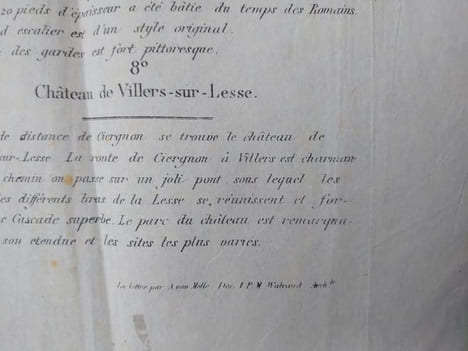 20 pieds d'épaisseur a été bâtie du temps des Romains.
d escalier est d'un style original.
des gardes est fort pittoresque.
8º
Château de Villers-sur-Lesse.
de distance de Ciergnon se trouve le château de
sur-Lesse La route de Ciergnon à Villers est charman
chemin on passe sur un joli pont, sous lequel les
les différents bras de la Lesse se, réunissent et for-
e Cascade superbe. Le parc du château est remarqua-
son etendue et les sites les plus varies.
par A van Molle, Des.